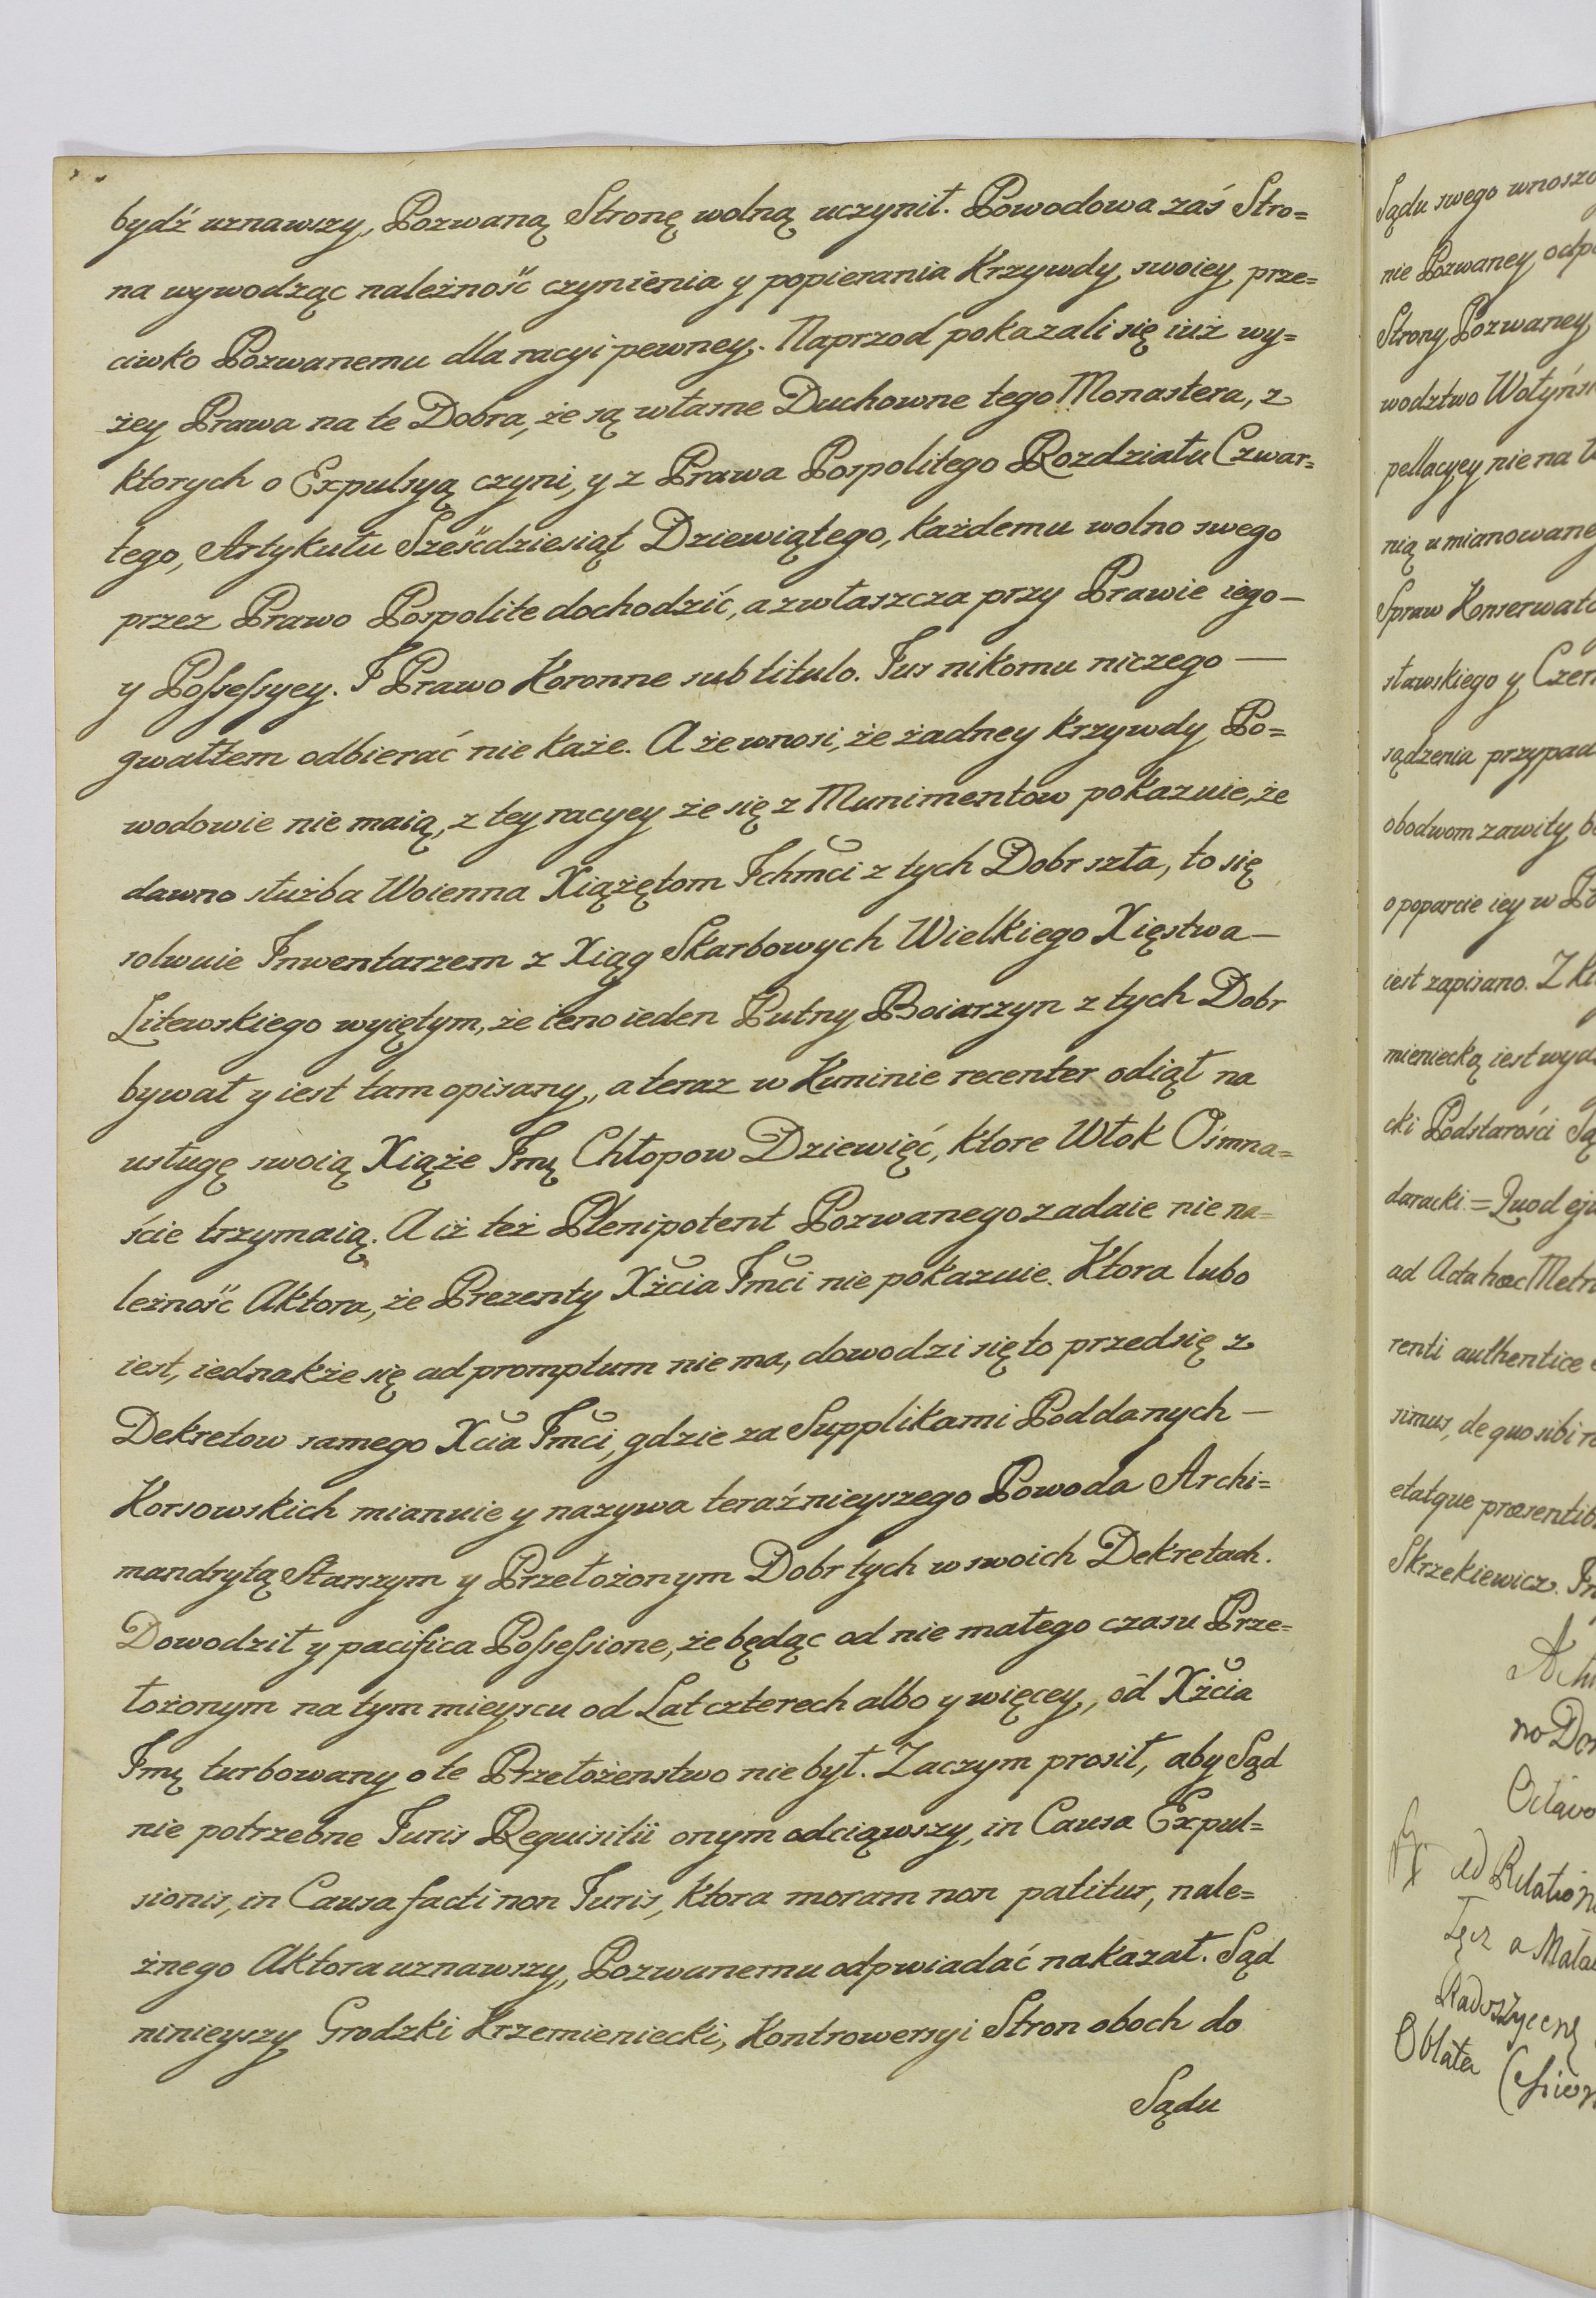 bydź uznawszy, Pozwaną Stronę wolną uczynił. Powodowa zaś Stro=
na wywodząc należność czynienia y popierania Krzywdy swoiey prze=
ciwko Pozwanemu dla racyi pewney. Naprzod pokazali się iuż wy=
żey Prawa na te Dobra, że są własne Duchowne tego Monastera, z
ktorych o Expulsyą czyni, y z Prawa Pospolitego Rozdziału Czwar=
tego, Artykułu Sześćdziesiąt Dziewiątego, każdemu wolno swego
przez Prawo Pospolite dochodzić, a zwłaszcza przy Prawie iego —
y Possessyey. I Prawo Koronne sub titulo. Jus nikomu niczego —
gwałtem odbierać nie każe. A że wnosi, że żadney krzywdy Po=
wodowie nie maią, z tey racyey że się z Munimentow pokazuie, że
dawno służba Woienna Xiążętom Ichmci z tych Dobr szła, to się
solwuie Inwentarzem z Xiąg Skarbowych Wielkiego Xięstwa —
Litewskiego wyiętym, że ieno ieden Putny Boiarzyn z tych Dobr
bywał y iest tam opisany, a teraz w Kuninie recenter odiął na
usługę swoią Xiąże Imę Chłopow Dziewięć, ktore Włok Ośmna=
ście trzymaią. A iż też Plenipotent Pozwanego zadaie nie na=
leżność Aktora, że Prezenty Xżcia Imci nie pokazuie. Ktora lubo
iest, iednakże się ad promptum nie ma, dowodzi się to przedsię z
Dekretow samego Xcia Imci, gdzie za Supplikami Poddanych —
Korsowskich mianuie y nazywa teraźnieyszego Powoda Archi=
mandrytą Starszym y Przełożonym Dobr tych w swoich Dekretach.
Dowodził y pacifica Possessione, że będąc od nie małego czasu Prze=
łożonym na tym mieyscu od Lat czterech albo y więcey, od Xżcia
Imę turbowany o te Przełożenstwo nie był. Zaczym prosił, aby Sąd
nie potrzebne Juris Requisitii onym odciąwszy, in Causa Expul=
sionis, in Causa facti non Juris, ktora moram non patitur, nale=
żnego Aktora uznawszy, Pozwanemu odpwiadać nakazał. Sąd
ninieyszy Grodzki Krzemieniecki, Kontrowersyi Stron oboch do
Sądu
Sądu swego wnoszo
nie Pozwaney odp
Strony Pozwaney
wodztwo Wołyńs
pellacyey nie na t
nią umianowane
Spraw Konserwato
sławskiego y Czer
sądzenia przypad
obodwom zawity b
o poparcie iey w Po
iest zapisano. Z kt
mieniecką iest wyd
cki Podstarości Są
daracki = Quod eju
ad Acta haec Metr
renti authentice e
simus, de quo sibi r
etatque praesentib
Skrzekiewicz.
no Do
Octavo
Ad Relation
a Mała
Oblata